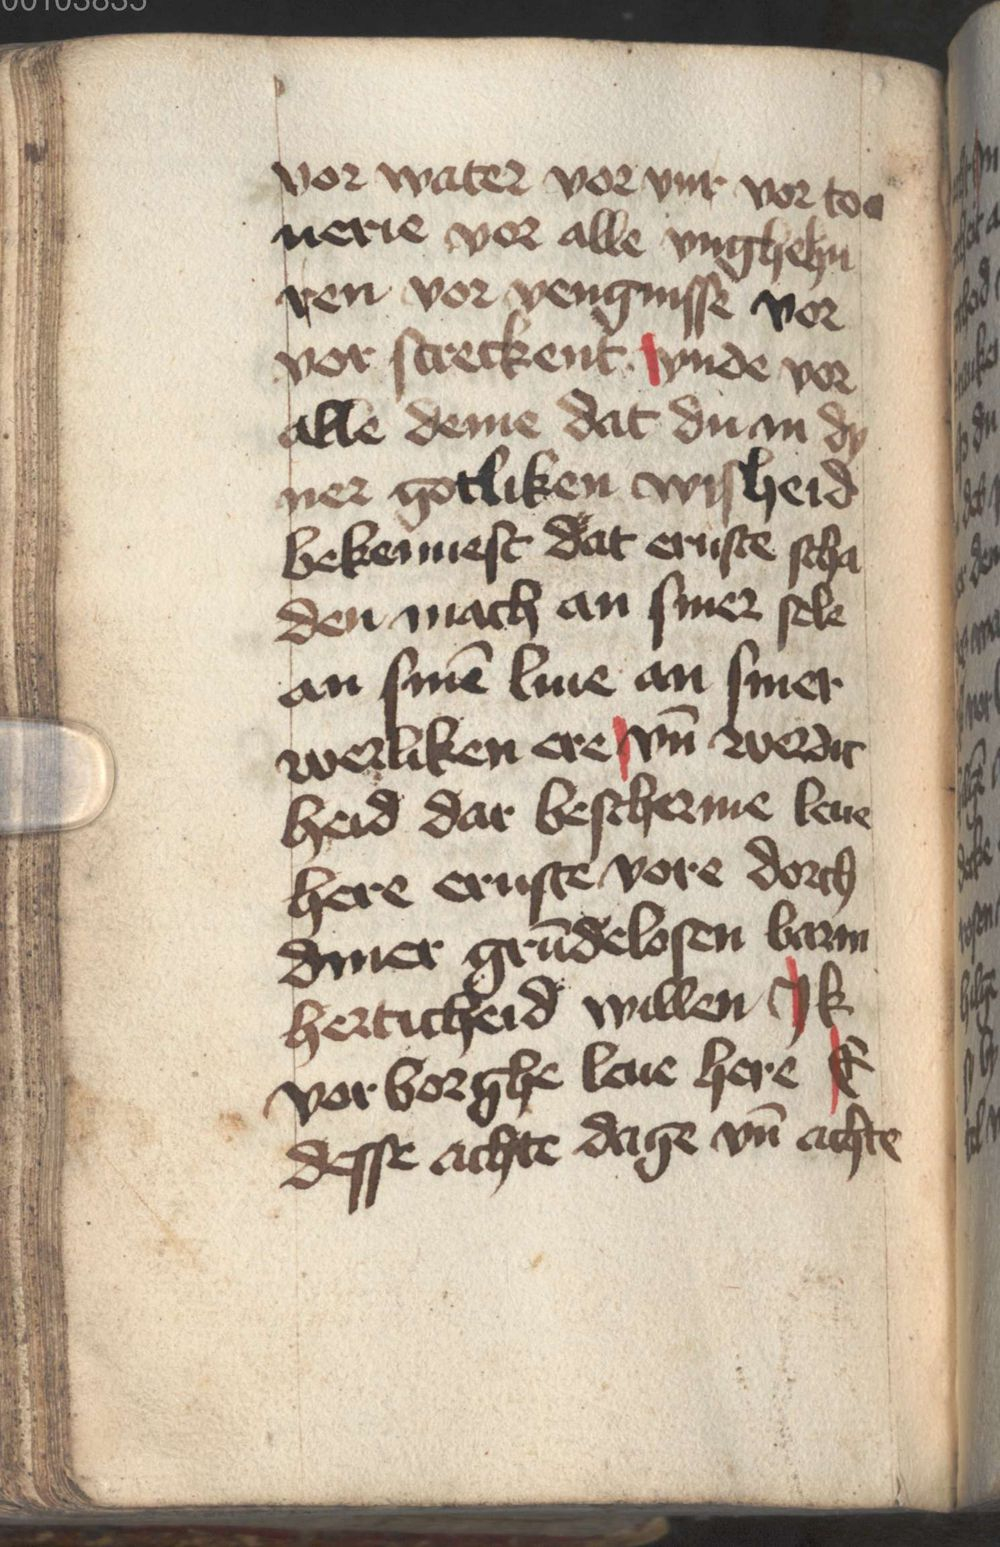 00103835
vor water vor vur vor too
uerie vor alle vnghehu
ren vor vengnisse vor
vor screckent vnde vor
alle deme dat du an dy
ner gotliken wisheid
bekennest dat ernste scha
den mach an siner sele
an sinē liue an siner
werliken ere vn̄ werdic
heid dar bescherme leue
here ernste vore dorch
diner grūdelosen barm
herticheid willen Jk
vor borghe leue here E
desse achte dage vn̄ achte